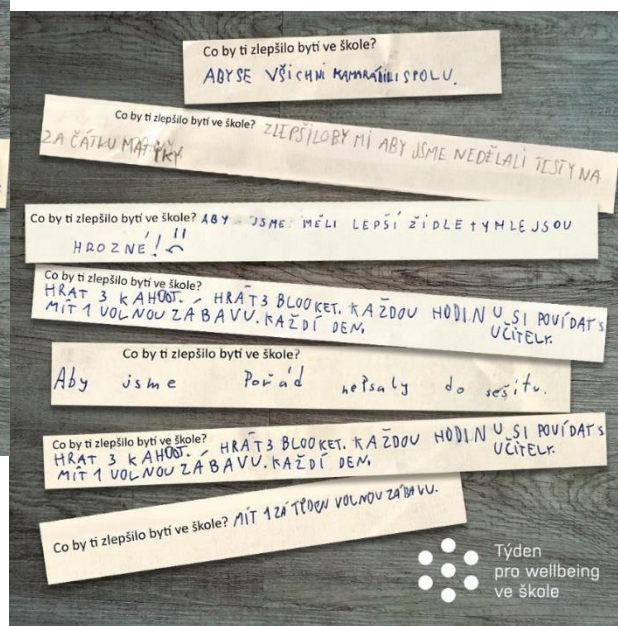 Co by ti zlepšilo bytí ve škole?
ABY SE VŠICHNI KAMARÁDILI SPOLU.
Co by ti zlepšilo bytí ve škole? ZLEPŠILOBY MI ABY JSME NEDĚLALI TESTY NA
ZA ČÁTKU MATYKY.
Co by ti zlepšilo bytí ve škole? ABY JSME MĚLI LEPŠÍ ŽIDLE TYHLE JSOU
HROZNÉ!
Co by ti zlepšilo bytí ve škole?
HRÁT 3 KAHOOT. HRÁT3 BLOOKET. KAŽDOU HODINU SI POVÍDAT S
MÍT 1 VOLNOU ZÁBAVU. KAŽDÍ DEN. UČITELY.
Co by ti zlepšilo bytí ve škole?
Aby jsme Pořád nepsaly do sešitu.
Co by ti zlepšilo bytí ve škole?
HRÁT 3 KAHOOT. HRÁT3 BLOOKET. KAŽDOU HODINU SI POVÍDAT S
MÍT 1 VOLNOU ZÁBAVU. KAŽDÍ DEN. UČITELY.
Co by ti zlepšilo bytí ve škole? MÍT 1 ZA TÝDEN VOLNOU ZÁBAVU.
Týden
pro wellbeing
ve škole